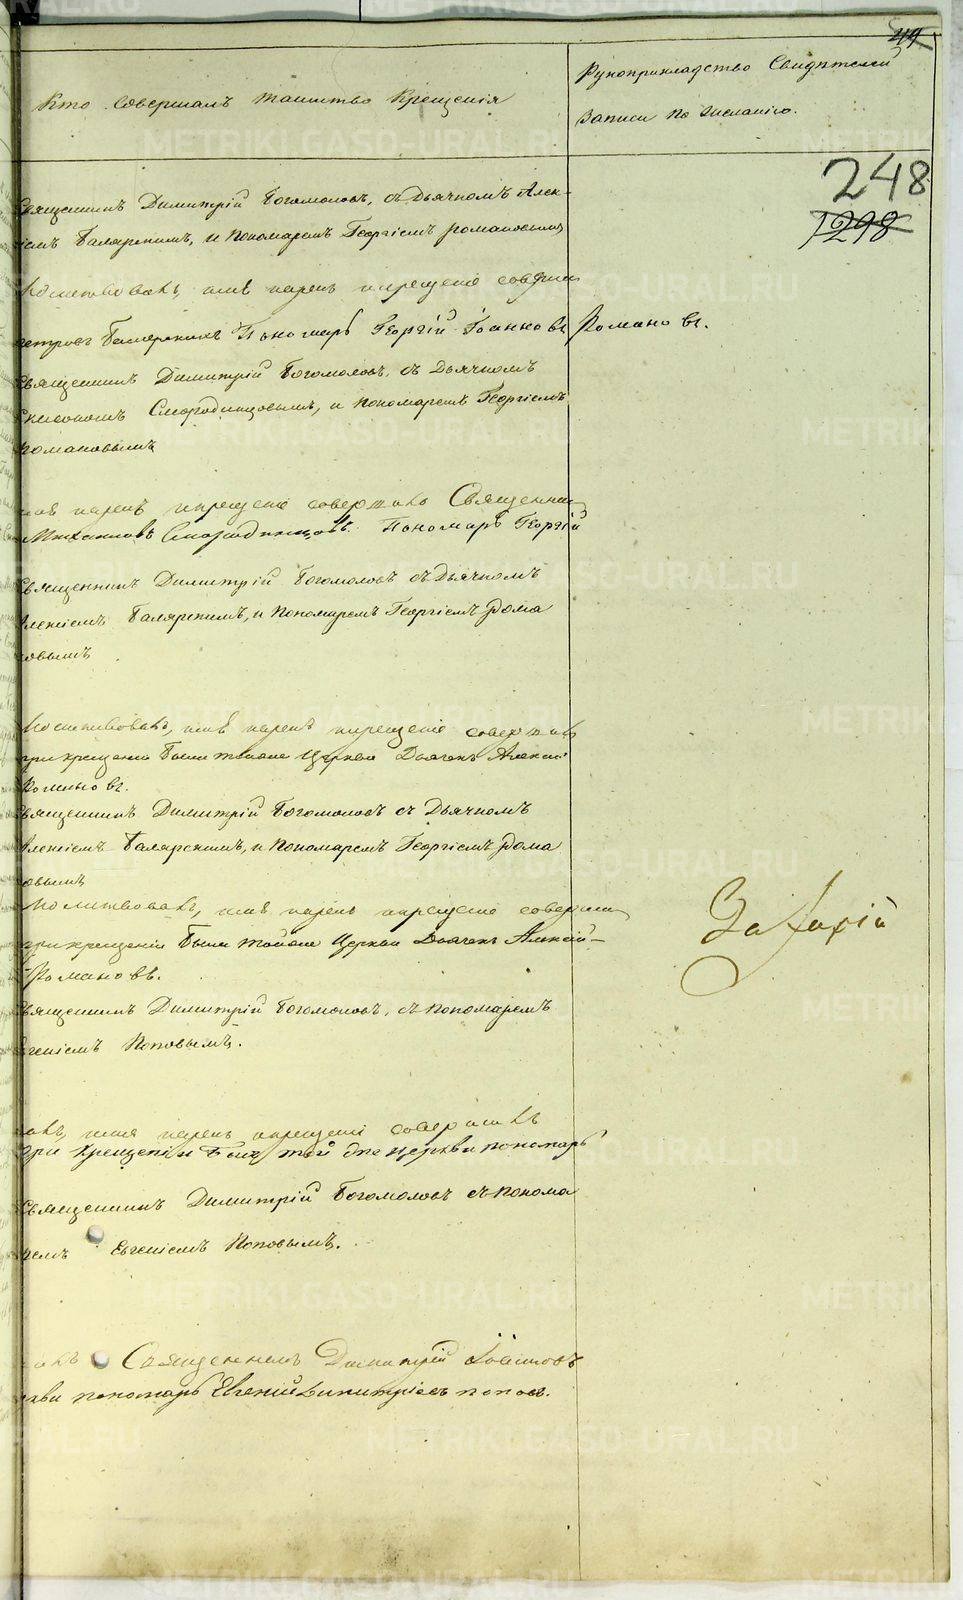 Кто совершалъ таинство крещенія
Рукоприкладство Свидѣтелей
Записи по желанію.
248
1298
Священникъ Димитрій Богомоловъ, съ Дьячкомъ Алек-
сіемъ Балярскимъ, и Пономаремъ Георгіемъ Романовымъ
имѣ нарекъ и крещеніе соверши
Пономарь Георгій Іоанновъ Романовъ.
Священникъ Димитрій Богомоловъ, съ Дьячкомъ
Смородинцовымъ, и Пономаремъ Георгіемъ
Романовымъ
имя нарекъ и крещеніе совершилъ Священни
Михаиловъ Смородинцовъ. Пономарь Георгій
Священникъ Димитрій Богомоловъ съ Дьячкомъ
Алексіемъ Балярскимъ, и Пономаремъ Георгіемъ Рома
новымъ
Молитвовалъ, имя нарекъ и крещеніе совершилъ
при крещеніи были тойже Церкви Дьячекъ Алексій
Романовъ.
Священникъ Димитрій Богомоловъ съ Дьячкомъ
Алексіемъ Балярскимъ, и Пономаремъ Георгіемъ Рома
новымъ
Молитвовалъ, имя нарекъ и крещеніе соверши
при крещеніи были тойже Церкви Дьячекъ Алексій
Романовъ.
Захарій
Священникъ Димитрій Богомоловъ, съ Пономаремъ
Евгеніемъ Поповымъ.
имя нарекъ и крещеніе совершилъ
при Крещеніи былъ той же церкви пономарь
Священникъ Димитрій Богомоловъ съ Понома
ремъ Евгеніемъ Поповымъ.
Священникъ Димитрій
церкви пономарь Евгеній Димитріевъ Поповъ.
METRIKI.GASO-URAL.RU